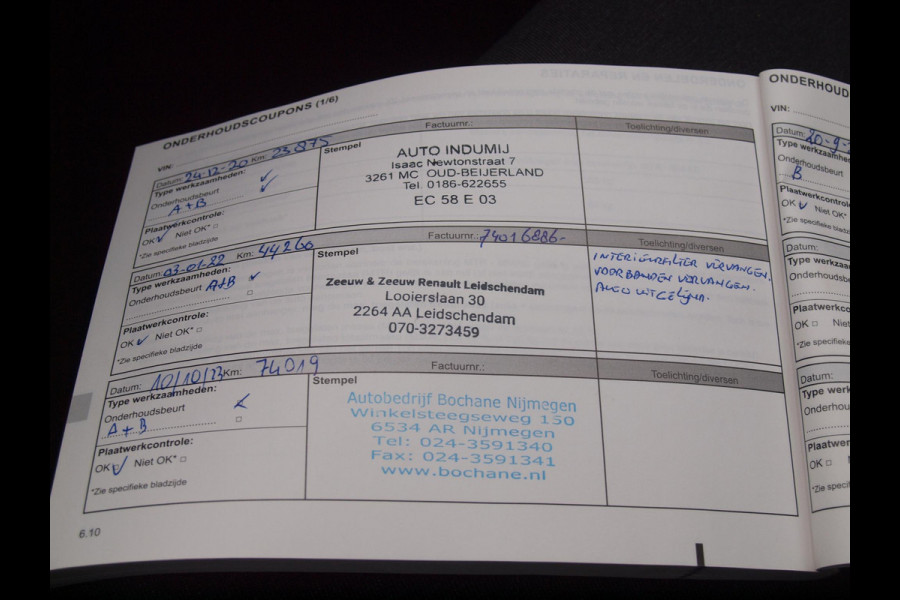 ONDERHOUDSCOUPONS (1/6)
VIN:
Factuurnr.:
Toelichting/diversen
Datum: 24-12-20 Km: 23875
Type werkzaamheden:
Onderhoudsbeurt
A+B
Plaatwerkcontrole:
OK Niet OK*
*Zie specifieke bladzijde
Stempel
AUTO INDUMIJ
Isaac Newtonstraat 7
3261 MC OUD-BEIJERLAND
Tel. 0186-622655
EC 58 E 03
Factuurnr.: 74016886-
Toelichting/diversen
Datum: 03-01-22 Km: 44260
Type werkzaamheden:
Onderhoudsbeurt A+B
Plaatwerkcontrole:
OK Niet OK*
*Zie specifieke bladzijde
Stempel
Zeeuw & Zeeuw Renault Leidschendam
Looierslaan 30
2264 AA Leidschendam
070-3273459
INTERIEURFILTER VERVANGEN.
VOORBANDEN VERVANGEN.
AUTO UITGELIJND.
Factuurnr.:
Toelichting/diversen
Datum: 10/10/23 Km: 74019
Type werkzaamheden:
Onderhoudsbeurt
A+B
Plaatwerkcontrole:
OK Niet OK*
*Zie specifieke bladzijde
Stempel
Autobedrijf Bochane Nijmegen
Winkelsteegseweg 150
6534 AR Nijmegen
Tel: 024-3591340
Fax: 024-3591341
www.bochane.nl
6.10
ONDERHOUD
VIN:
Datum: 20-9-
Type werkzaamhe
Onderhoudsbeurt
B
Plaatwerkcontrol
OK Niet OK*
*Zie specifieke blad
Datum:
Type werkza
Onderhoudsb
Plaatwerkco
OK Niet
*Zie specifieke
Datum:
Type werk
Onderhou
Plaatwer
OK N
*Zie speci